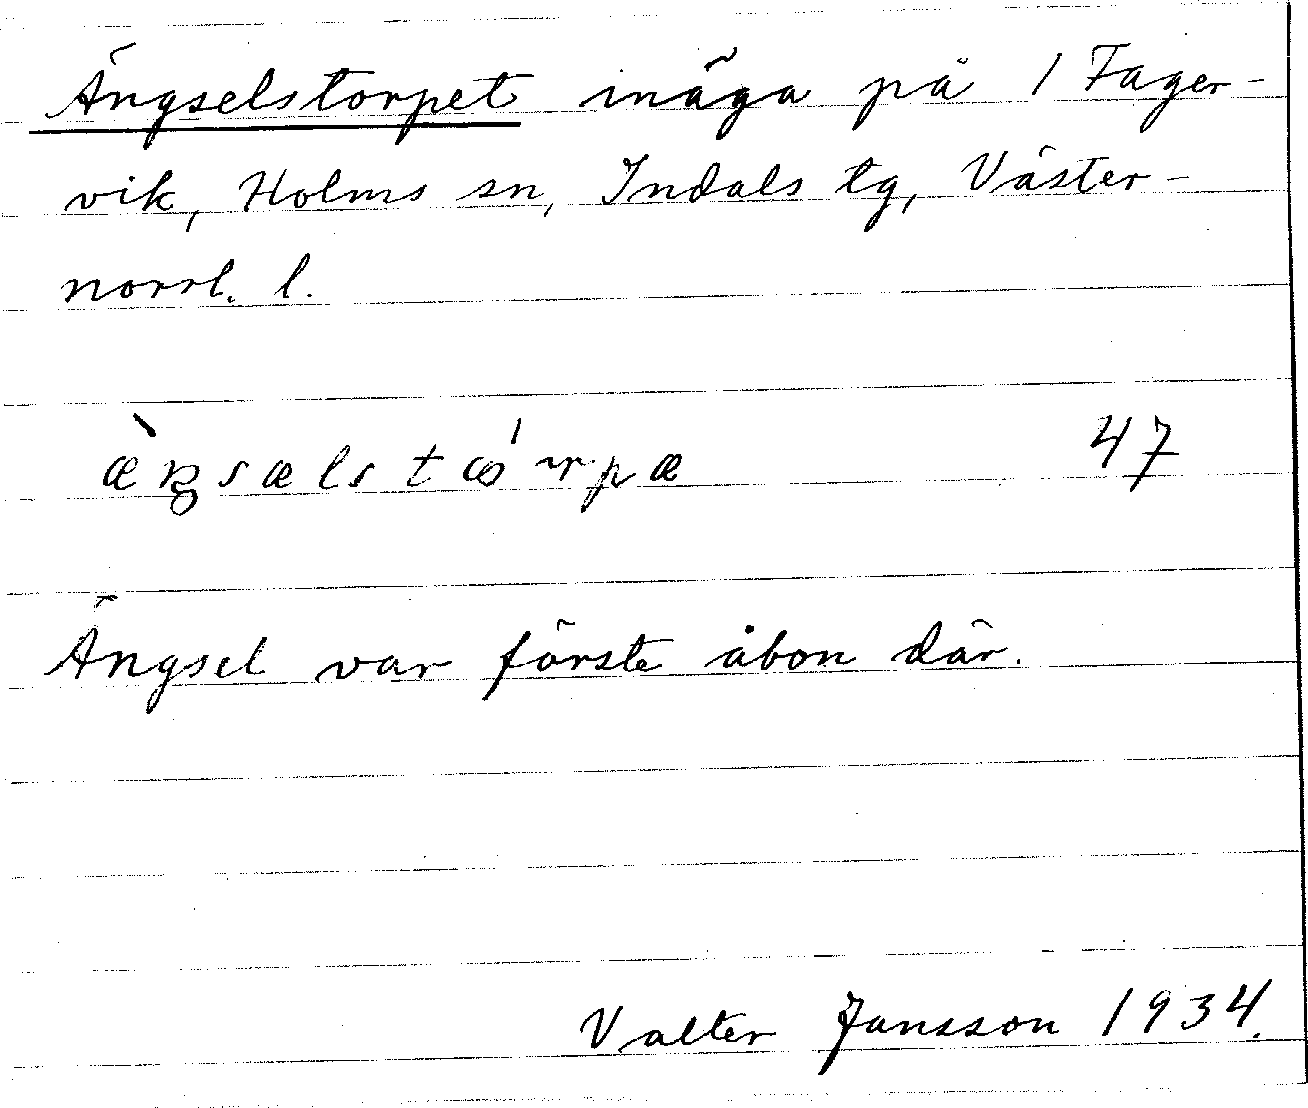 Ängselstorpet inäga på 1 Fager-
vik, Holms sn, Indals tg, Väster-
norrl. l.
æ̀ŋsælstⱺ́rpæ 47
Ängsel var förste åbon där.
Valter Jansson 1934.